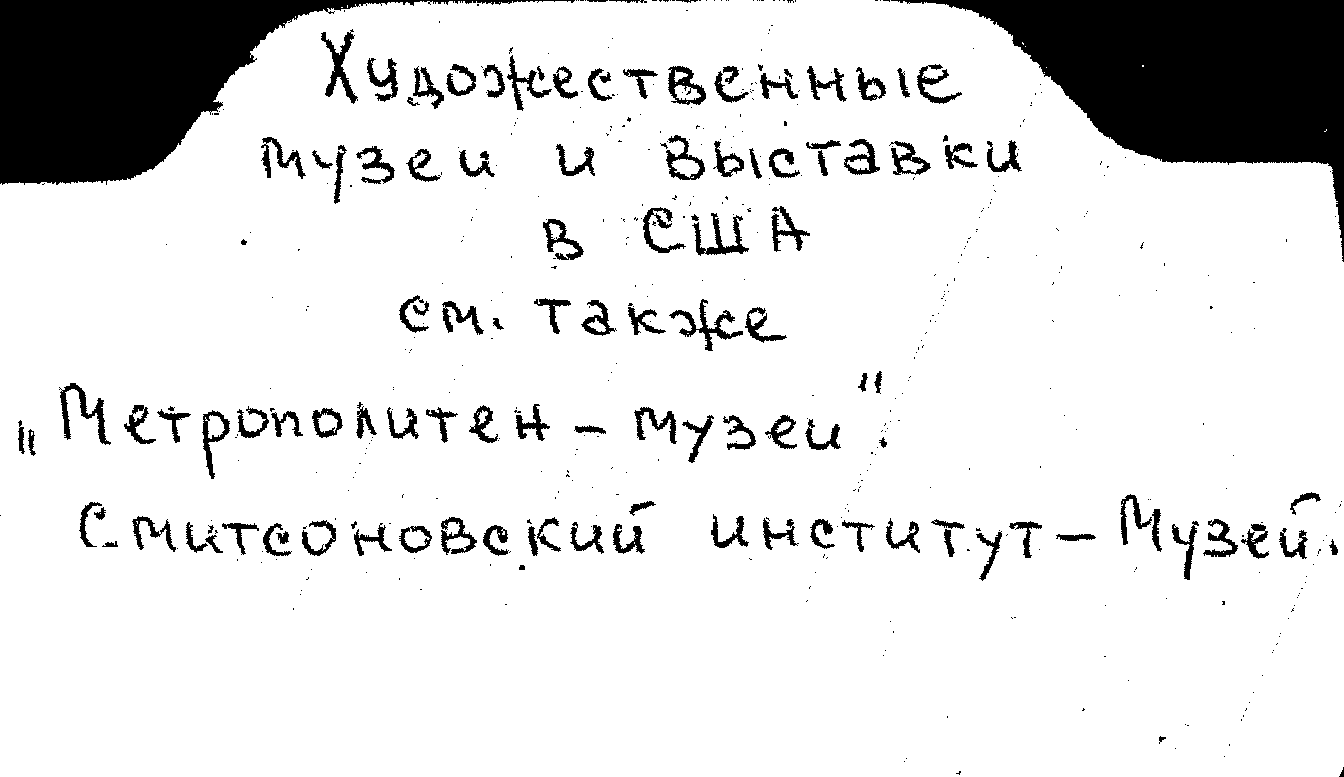 Художественные
музеи и выставки
в США
см. также
„Метрополитен – музеи".
Смитсоновский институт – Музей.